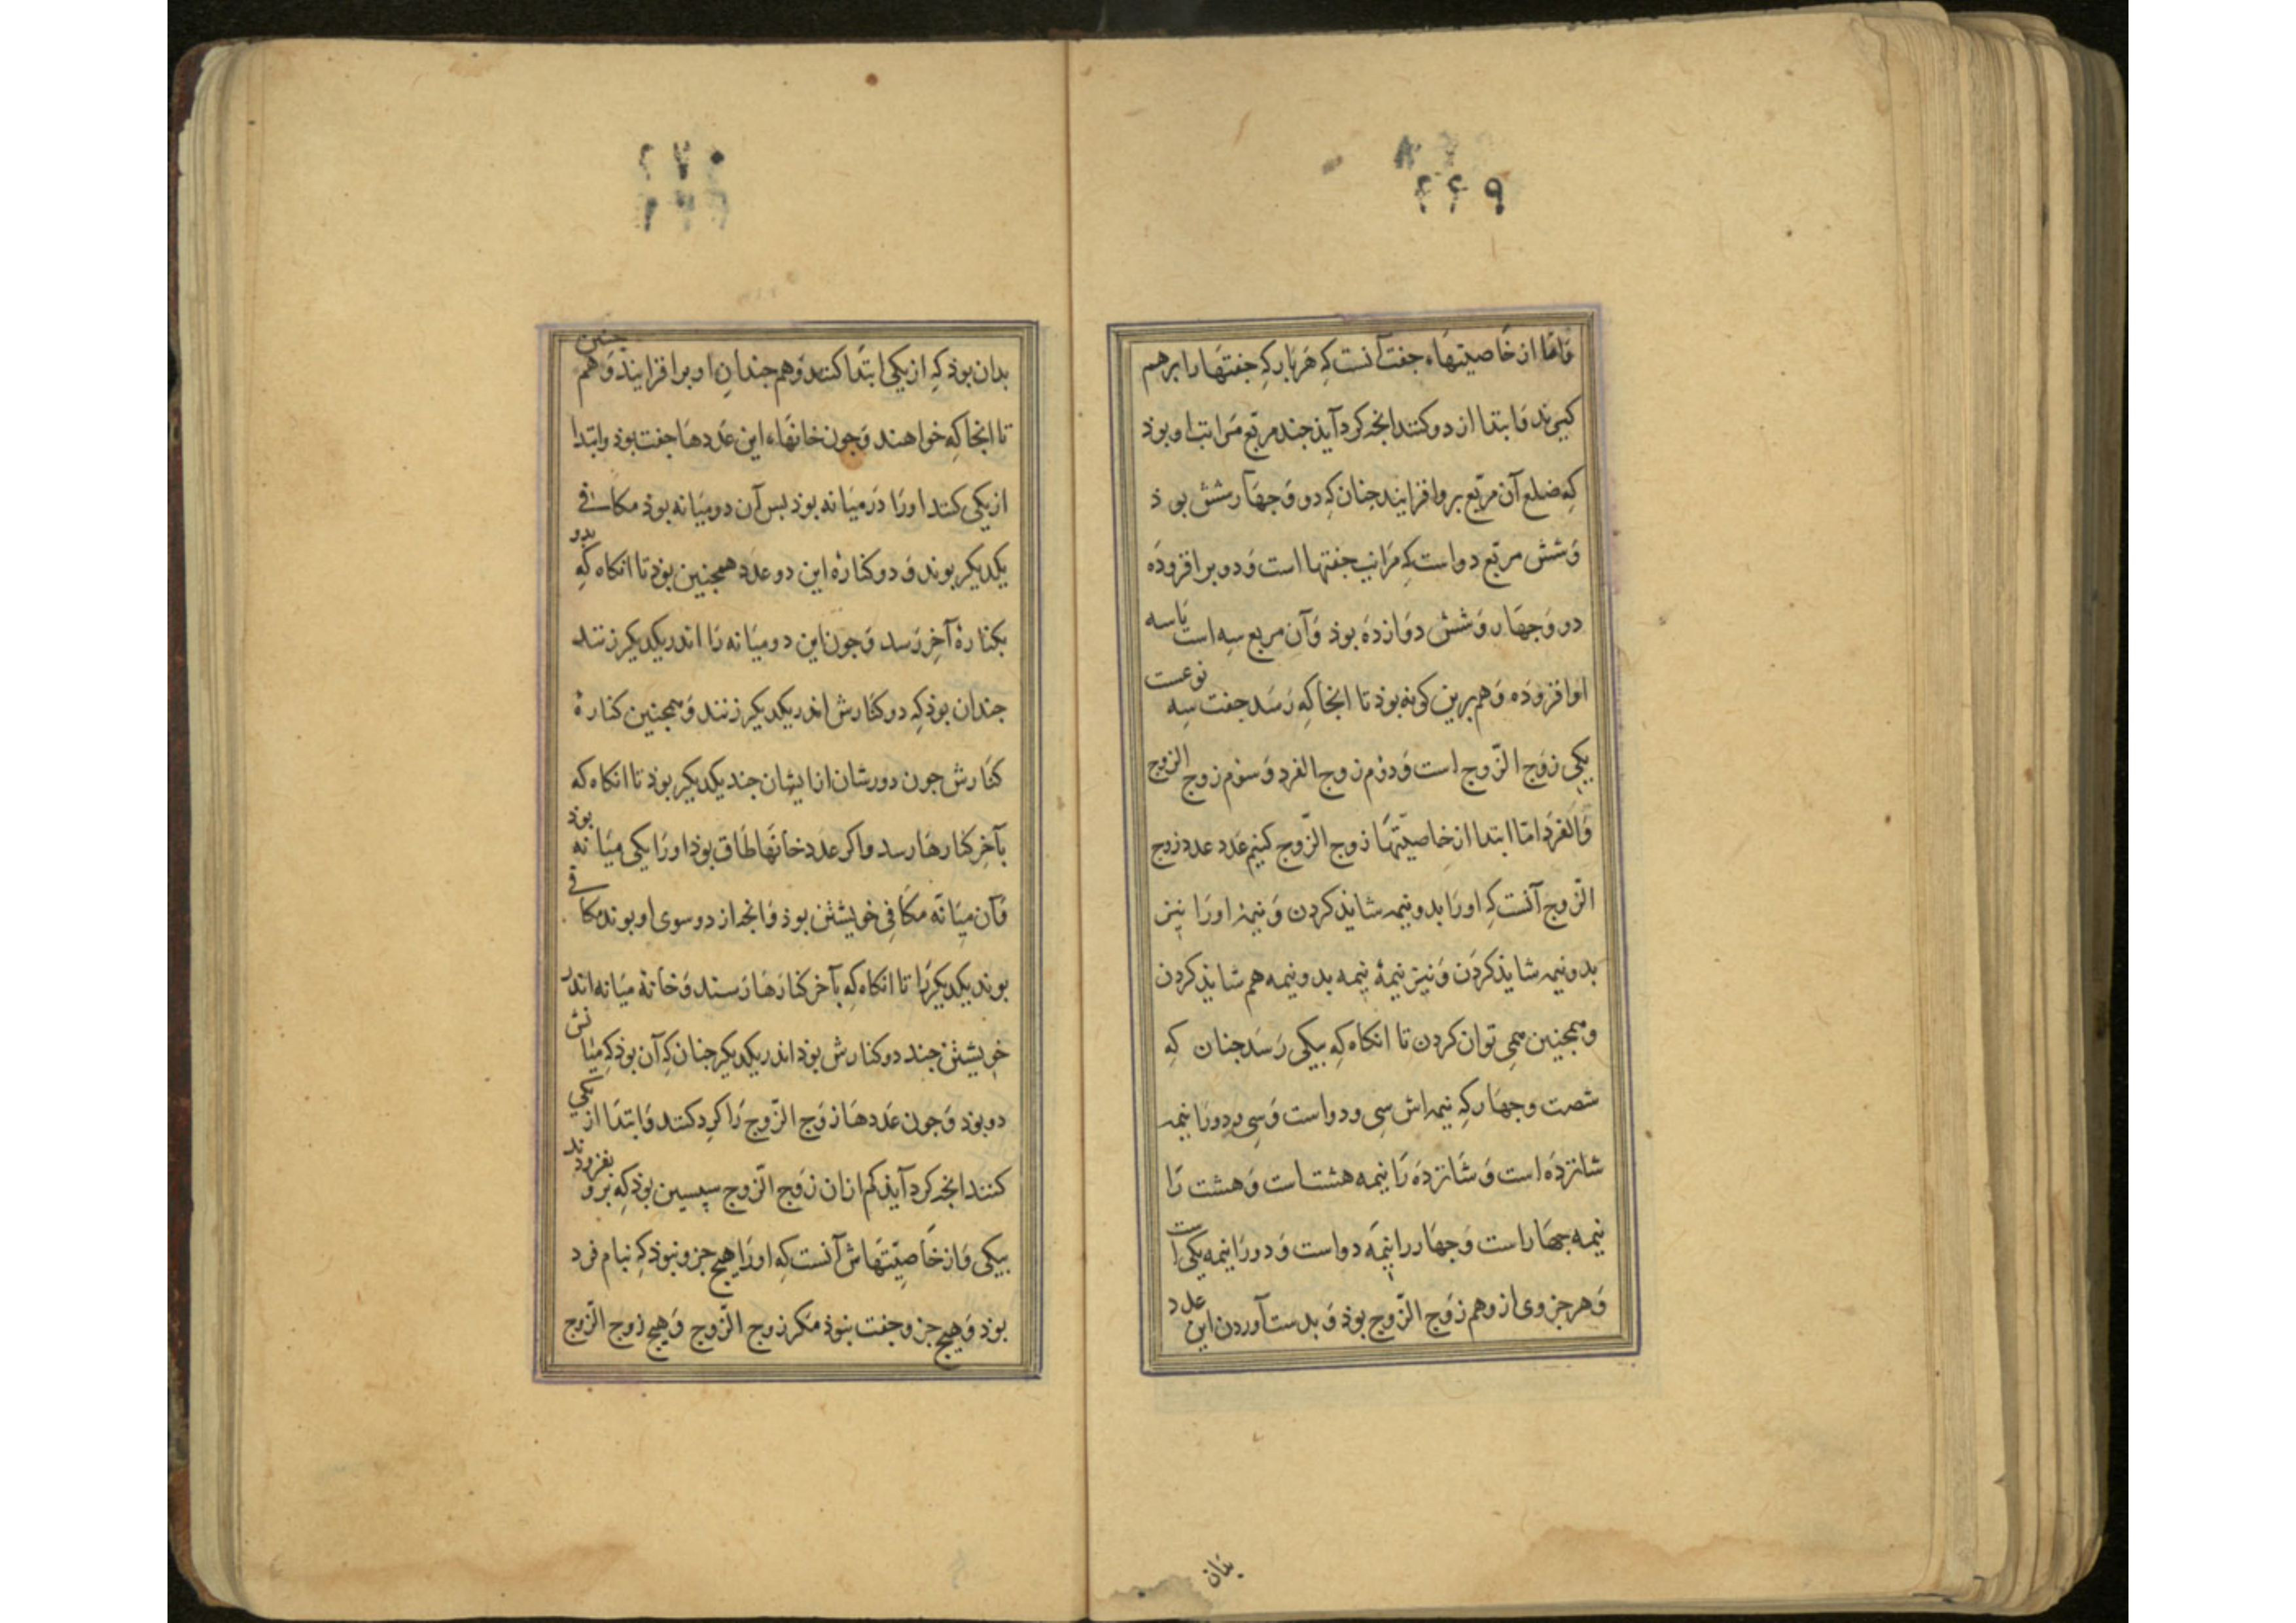 ۲۶۹
وَامّا از خاصیتهاء جفت آنست کِه هَر بار کِه جفتهَا را بر هم
کیرند وَ ابتدا از دو کنند انجه کرد آیذ جند مربّع مَراتب او بوذ
کِه ضلع آن مربّع بر وافزایند جنان کِه دو وَ جهَار شش بوذ
وَ شش مربّع دو است کِه مَراتب جفتها است وَ دو بر افزوذَه
دو وَ جهَار وَ شش دوَازدَه بوذ وَ آن مربع سِه است یَا سه
او افزوذه وَ هم برین کونه بوذ تا انجا کِه رَسَد جفت سِه نوعست
یکی زوَج الزّوج است وَ دوُم زوج الفرد وَ سوُم زوج الزوج
وَالفرَد امّا ابتدا از خاصیّتهَا زوج الزّوج کنیم عَدد عدد زوج
الزّوج آنست کِه اورَا بدو نیمه شایذ کردن وَ نیمهٔ اورَا نیز
بدو نیمه شایذ کردَن وَ نیز نیمهٔ نیمه بدو نیمه هم شایذ کردن
وهمجنین همی توان کردن تا انکاه کِه بیکی رَسَد جنان کِه
شصت وجهَار کِه نیمه اش سِی و دو است وَ سِی ودو رَا نیمه
شانزدَه است وَ شانزدَه رَا نیمه هشتاست وَ هشت رَا
نیمه جهَاراست وَ جهَاررا نیمَه دواست وَ دو رَا نیمه یکی است
وَهر جزوی ازوهم زوَج الزّوج بوذ وَ بدست آوردن این عدد
بذان
۲۷۰
بدان بوذ کِه از یکی ابتدَا کنند وَهم جندانِ او بر افزایند وَهم جنین
تا انجا کِه خواهند وَجون خانهَاء این عَددهَا جفت بوذ وابتدا
از یکی کنند اورَا دَر میَانه بوذ بس آن دو میَانه بوذ مکافی
یکدیکر بوند وَ دو کنارهٔ این دو عدَد همجنین بوذ تا انکاه کِه بدو
بکنارهٔ آخِر رَسد وَجون این دو میَانه رَا اندر یکدیکر زنند
جندان بوذ کِه دو کنَارش اندر یکدیکر زنند وَهمجنین کنارهٔ
کنَارش جون دورشان از ایشان جند یکدیکر بوذ تا انکاه که
بآخِر کنارهَا رسد واکر عدَد خانهَا طَاق بوذ اورَا یکی میَانه بوذ
وَآن میَانه مکافِی خویشتن بوذ وَانجه از دو سوی او بوند مکافی
بوند یکدیکررَا تا انکاه کِه بآخر کنارَهَا رَسند وَخانهٔ میَانه اندر
خویشتن جند دو کنارش بوذ اندر یکدیکر جنان کِه آن بوذ کِه میانش
دو بوذ وَجون عَددهَا زوَج الزّوج رَا کرد کنند وَابتدَا از یکی
کنند انجه کرد آیذ کم ازان زوَج الزّوج سپسین بوذ کِه برو بفزوذند
بیکی وَاز خاصیّتهَاش آنست کِه اورَا هیج جزو نبوذ کِه بنام فرد
بوذ وَهیج جزو جفت بنوذ مَکر زوج الزّوج وَهیج زوج الزّوج